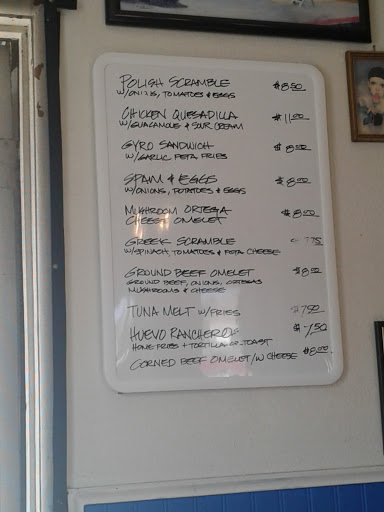 POLISH SCRAMBLE $8.50
W/ONIONS, TOMATOES & EGGS
CHICKEN QUESADILLA $11.00
W/GUACAMOLE & SOUR CREAM
GYRO SANDWICH $8.00
W/GARLIC FETA FRIES
SPAM & EGGS $8.00
W/ONIONS, POTATOES & EGGS
MUSHROOM ORTEGA $8.00
CHEESE OMELET
GREEK SCRAMBLE
W/SPINACH, TOMATOES & FETA CHEESE
GROUND BEEF OMELET $8.50
GROUND BEEF, ONIONS, ORTEGAS
MUSHROOMS & CHEESE
TUNA MELT W/FRIES $7.50
HUEVO RANCHEROS $7.50
HOME FRIES + TORTILLA OR TOAST
CORNED BEEF OMELET/W CHEESE $8.00